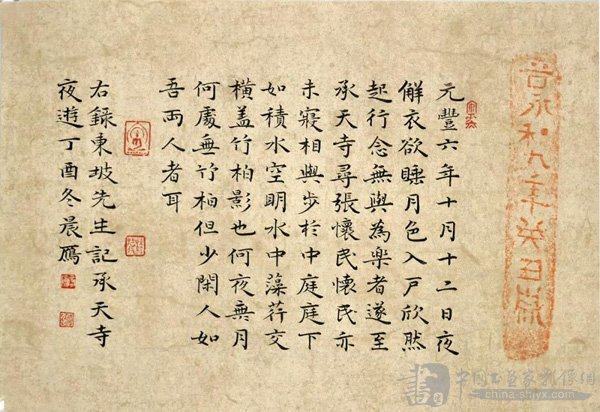 晉永和九年
元豐六年十月十二日夜
解衣欲睡月色入戶欣然
起行念無與為楽者遂至
承天寺尋張懷民懷民亦
未寢相與步於中庭庭下
如積水空明水中藻荇交
橫盖竹柏影也何夜無月
何處無竹柏但少閑人如
吾两人者耳
右錄東坡先生記承天寺
夜遊丁酉冬晨鴈
書
china-shjyx.com